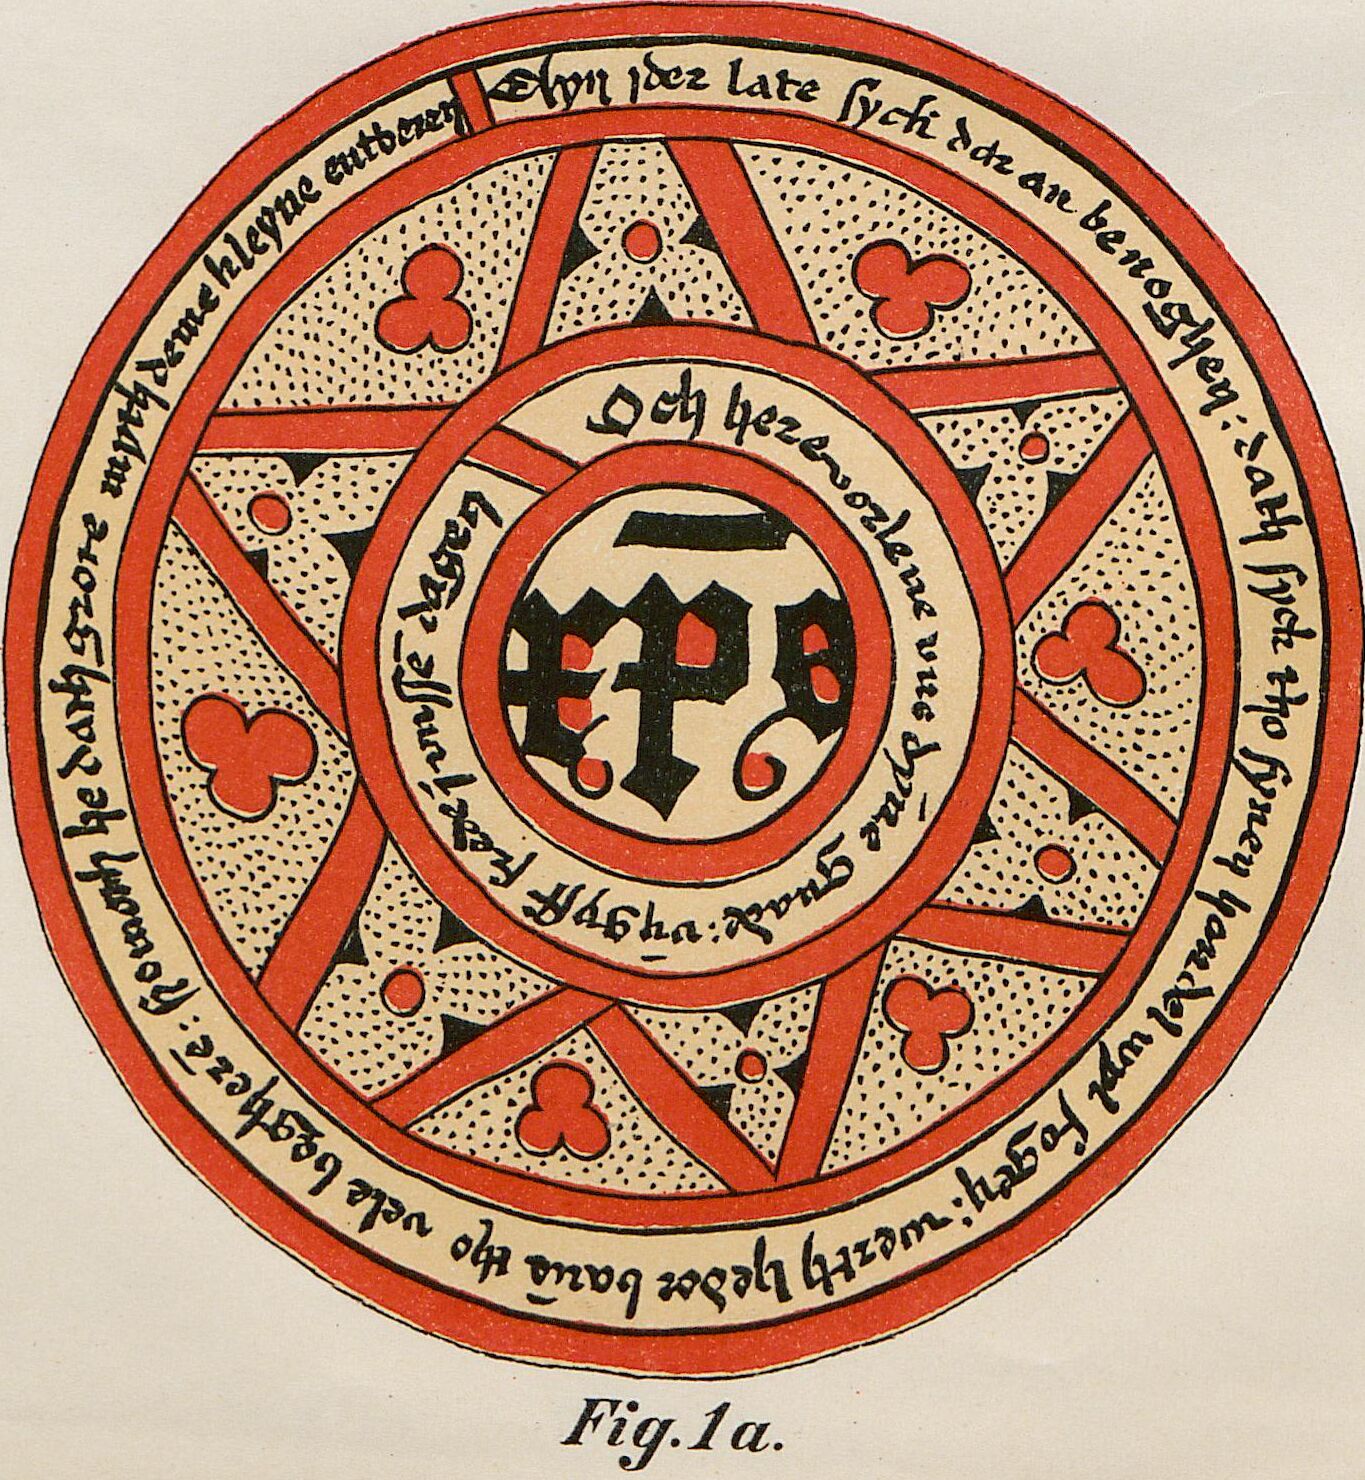 Elyn jder late sych dar an benoghen: dath sych tho syney handel wyl fogen: werth heder bauē tho vele begherē: he dath grote myth deme kleyne entberen
Och here vorlene vns dyne gnade: vn̄ gyff frede j vnsē dagen
xp̄o
Fig. 1a.